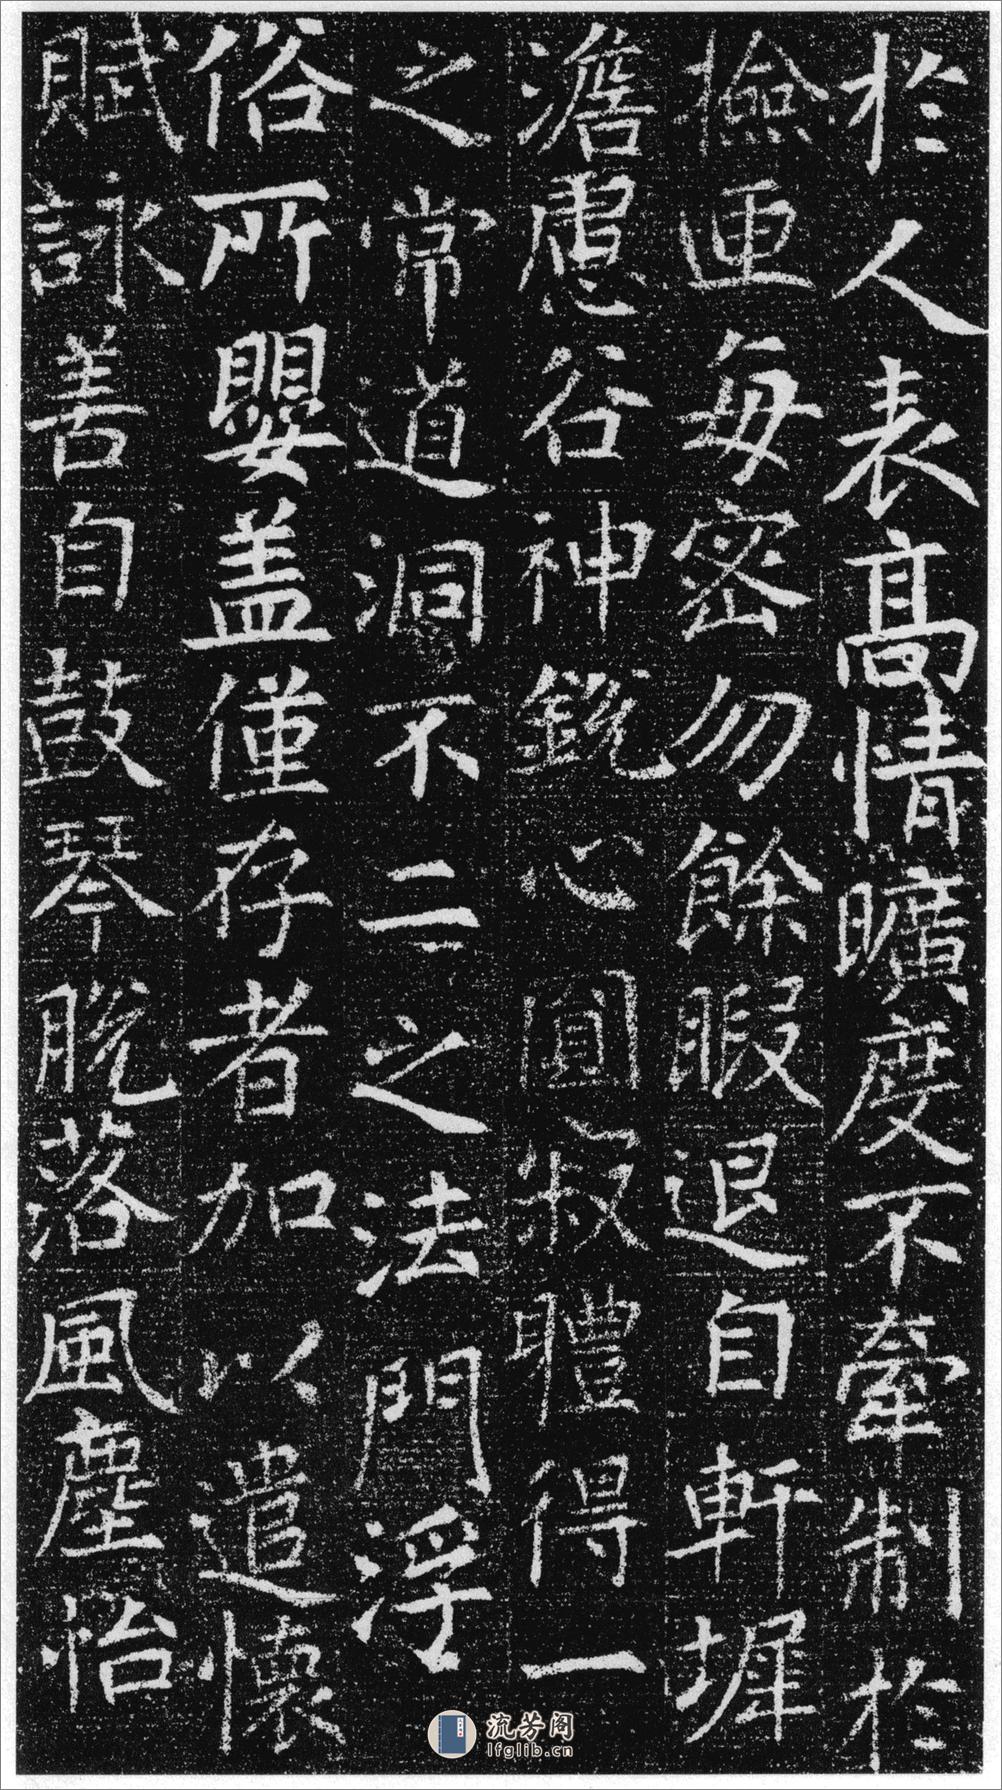 於人表高情曠度不牽制於
撿每密勿餘暇退自軒墀
澹慮谷神銳心圓寂體得一
之常道洞不二之法門浮
俗所嬰盖僅存者加以遣懷
賦詠善自鼓琴脫落風塵怡
流芳阁
lfglib.cn